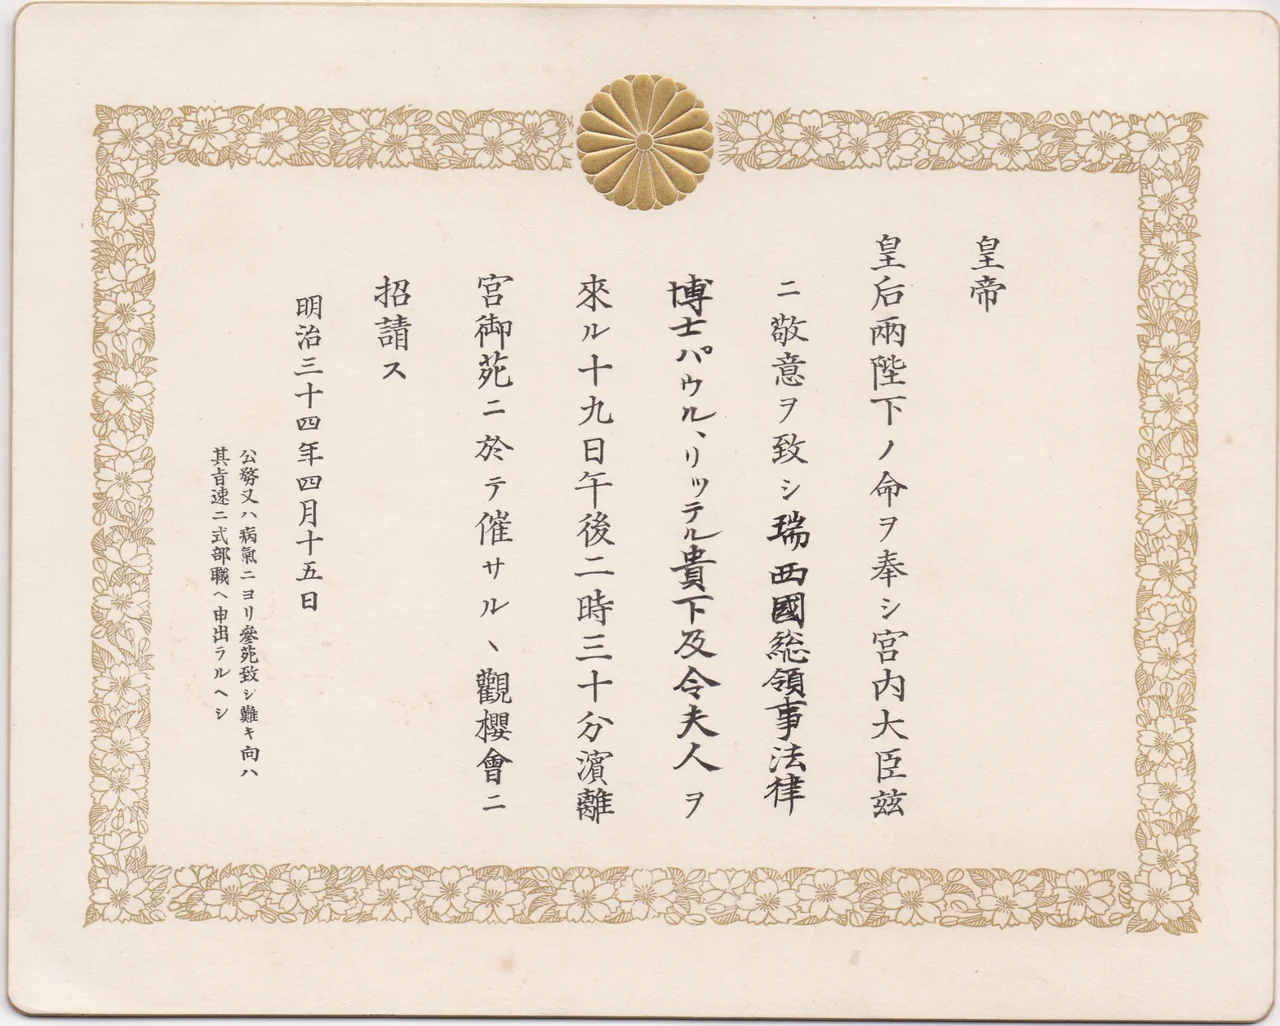 皇帝
皇后兩陛下ノ命ヲ奉シ宮内大臣玆
ニ敬意ヲ致シ瑞西國総領事法律
博士パウル、リッテル貴下及令夫人ヲ
來ル十九日午後二時三十分濱離
宮御苑ニ於テ催サルヽ觀櫻會ニ
招請ス
明治三十四年四月十五日
公務又ハ病氣ニヨリ參苑致シ難キ向ハ
其旨速ニ式部職ヘ申出ラルヘシ